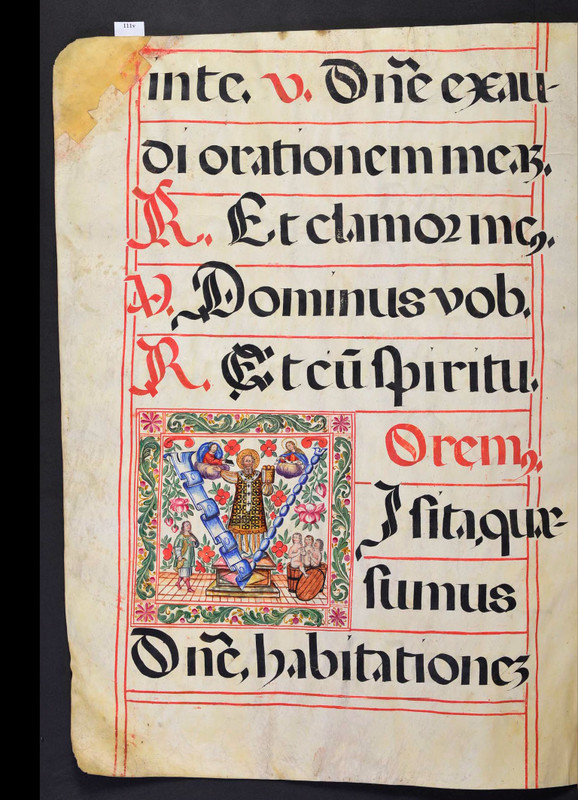 111v
in te. v. Dñe exau-
di orationem meaꝫ.
R. Et clamor meꝯ.
V. Dominus vob.
R. Et cū spiritu.
Oremꝯ.
Visita, quæ-
sumus
Dñe, habitationeꝫ